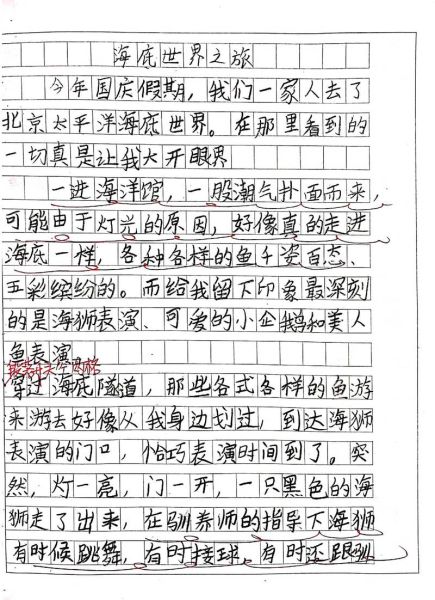 海底世界之旅
今年国庆假期，我们一家人去了
北京太平洋海底世界。在那里看到的
一切真是让我大开眼界
一进海洋馆，一股潮气扑面而来，
可能由于灯光的原因，好像真的走进
海底一样，各种各样的鱼千姿百态、
五彩缤纷的。而给我留下印象最深刻
的是海狮表演、可爱的小企鹅和美人
鱼表演。
段落开头空两格
穿过海底隧道，那些各式各样的鱼游
来游去好像从我身边划过，到达海狮
表演的门口，恰巧表演时间到了。突
然，灯一亮，门一开，一只黑色的海
狮走了出来，在驯养师的指导下海狮
有时候跳舞，有时接球，有时还跟驯